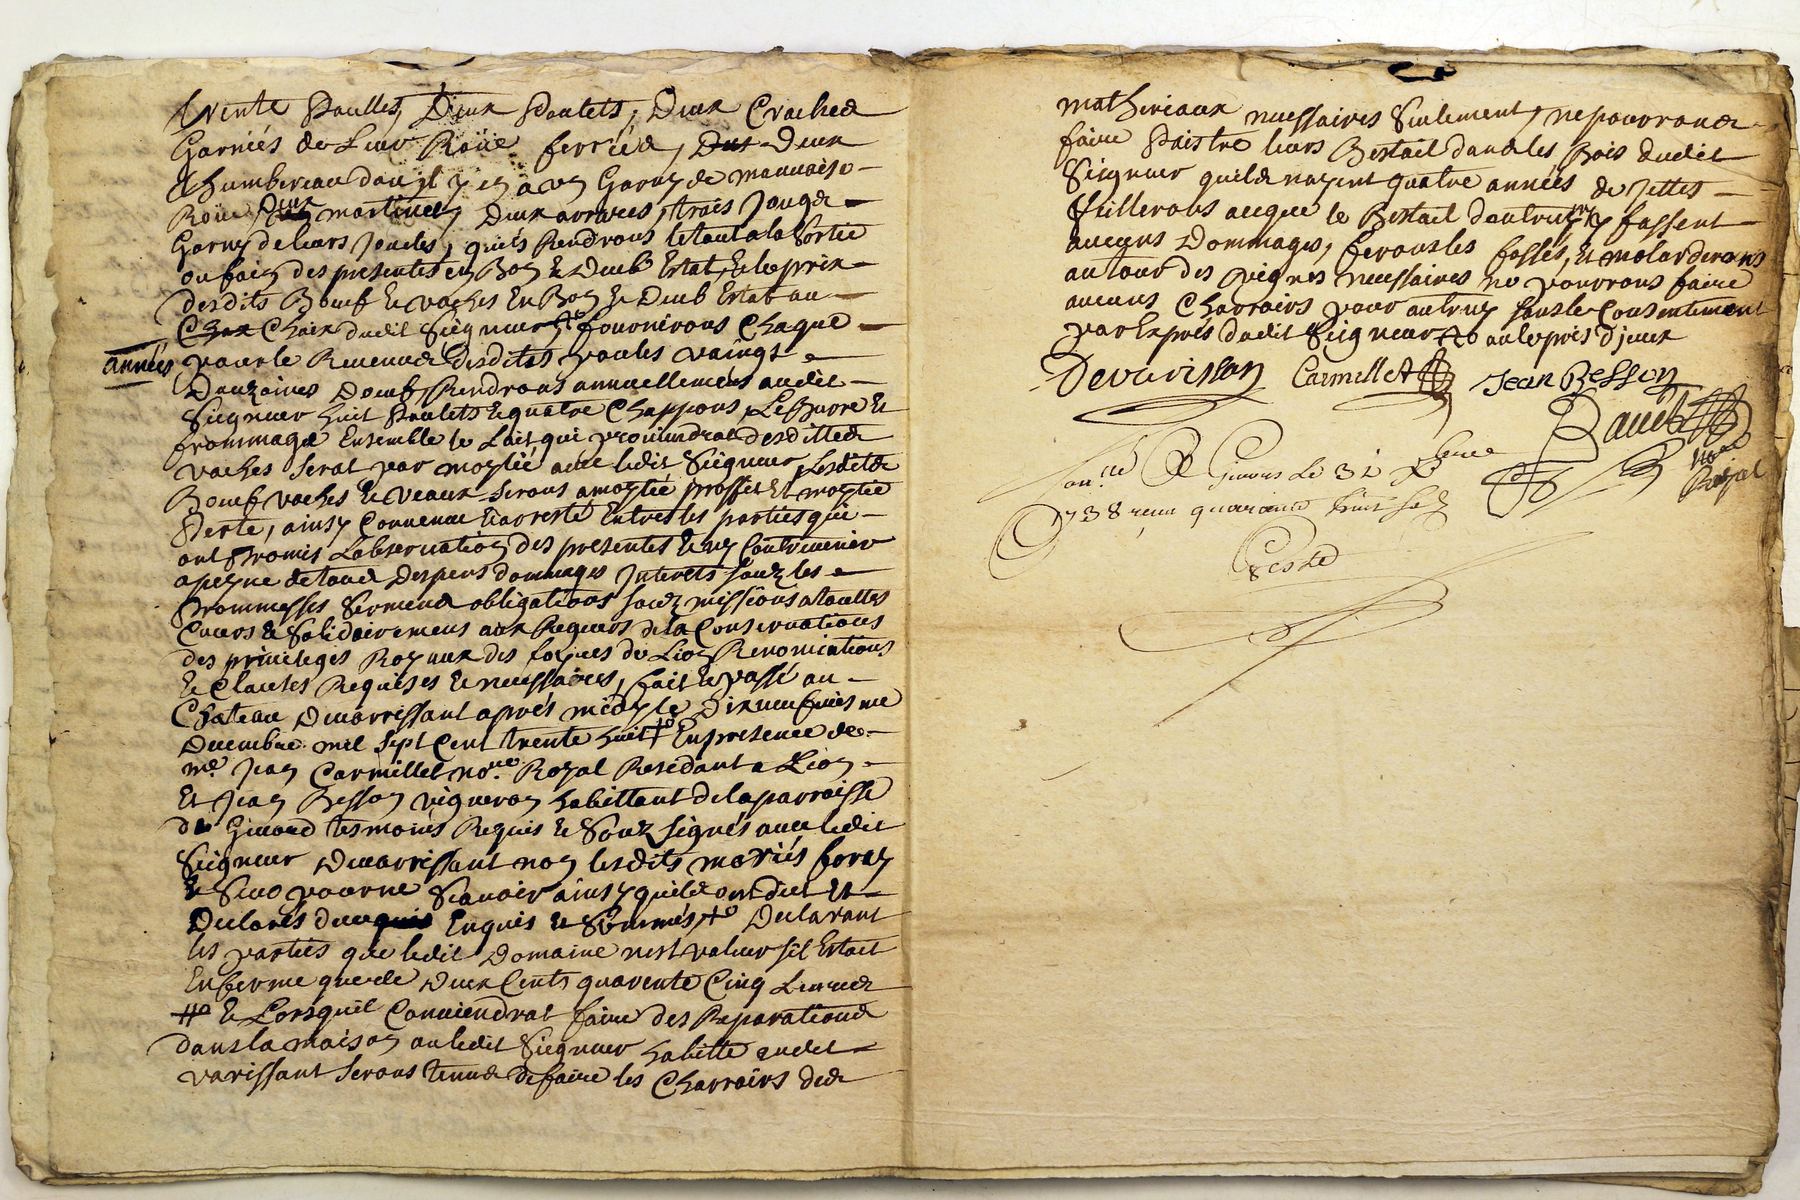 trente Poulles, Deux Poulets, Deux Craches
Garnies de Leur Roüe ferrées, Dux Deux
Thumbereau dou jl y en a vn Garny de mauuaise
Roüe Deux martines, Deux araires, trois Jougs
Garny de leurs Joucles, quils Rendrons le tout a la Sortie
ou fain des presentes en Bon & Deub Estat, & le prix
desdits Boeuf & vaches En Bon & Deub Estat au
Choix dudit Seigneur, fourniront Chaque
années pour le Reuenus desdites poules vaingt
Douzaines Doeufs Rendrons annuellement audit
Seigneur huit Poulets & quatre Chappons, Le Burre Et
frommage Ensemble le Lait qui prouiendrat desdittes
vaches Serat par moytié auec ledit Seigneur, Lesdits
Boeuf vaches & veaux Serons a moytié proffit Et moytié
Perte, ainsy Conuenue & arresté Entre les parties qui
ont Promis Lobseruation des presentes & ny Contreuenir
a peyne de tous Despens dommages Interets Souz les
Prommesses Serments obligations Souz missions a touttes
Cours & Solidairement aux Rigueurs de la Conseruations
des priuileges Royaux des foyres de Lion Renonciations
& Clauses Requises & necessaires, fait & passé au
Chateau Deuarissant aprés midy le Dixneufuiesme
Decembre mil Sept Cent trente huit En presence de
me Jean Carmillet nore Royal Residant a Lion
Et Jean Besson vigneron habittant de la parroisse
de Giuord tesmoins Requis & Souz Signés auec ledit
Seigneur Deuarissant non lesdits mariés forey
& Seuo pour ne Scauoir ainsy quils ont dit Et
Declarés de ce Enquis & Sommés, Declarant
les parties que ledit Domaine n'est valeur Sil Estait
En ferme que de Deux Cents quarente Cinq Liures
& Lorsquil Conuiendrat faire des Reparations
dans la maison ou ledit Seigneur habitte audit
varissant Serons tenus de faire les Charroirs des
matheriaux necessaires Seulement, ne pouvrons
faire Paistre leurs Bestail dans les Bois dudit
Seigneur quils nayent quatre années de Jettes
aucuns Dommages, ferons les fossés, & molarderons
autour des vignes necessaires ne pourrons faire
aucuns Charroirs pour autruy Sans le Consentement
par Exprés dudit Seigneur
Devarissan Carmillet Jean Besson
Bauet
nore
Royal
Con.llé A Giuors Le 31 Xbre
1738 reçu quarante huit Sols